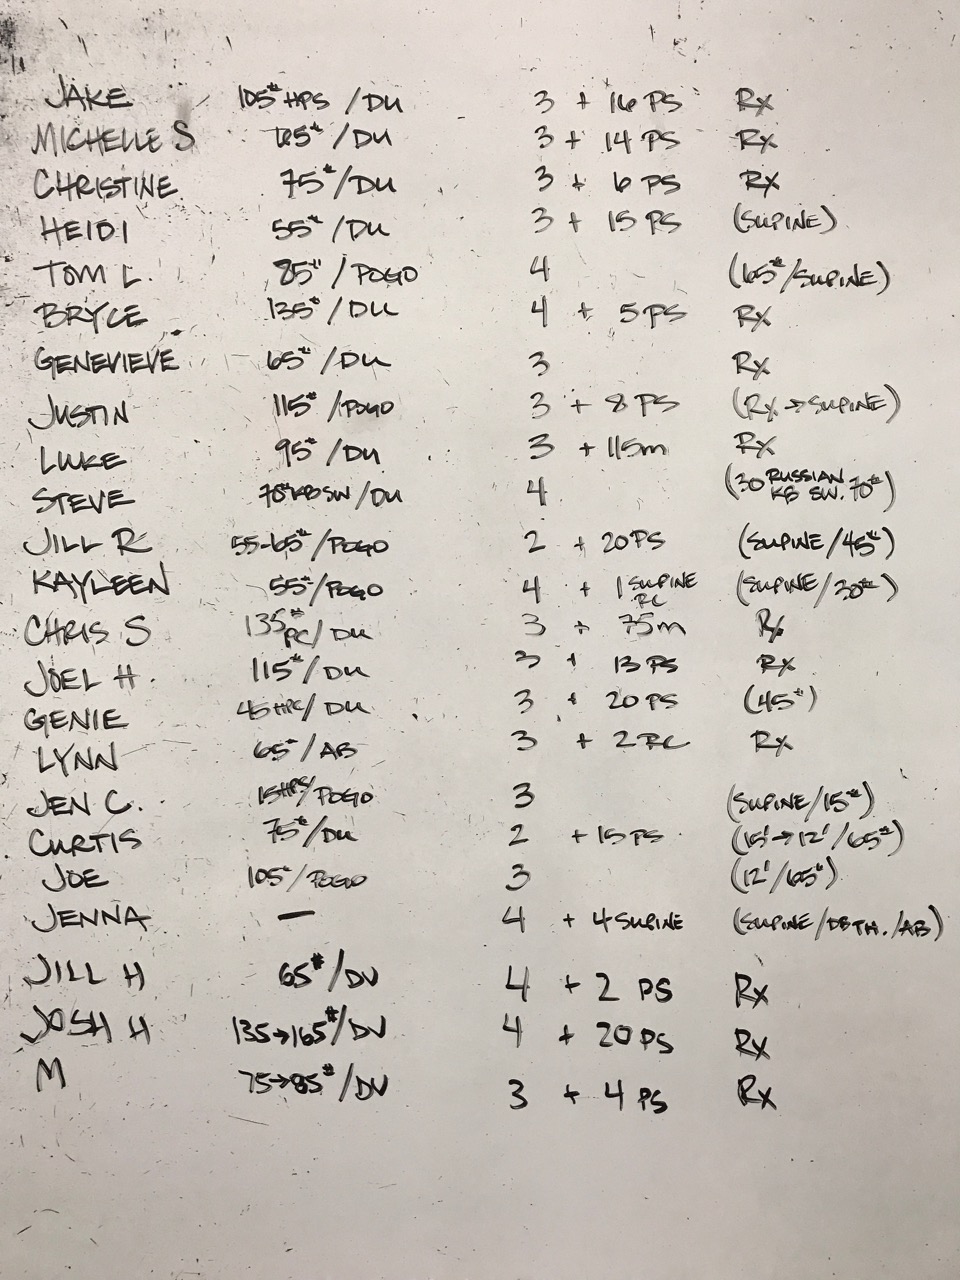 JAKE 105# HPS /DU 3 + 16 PS Rx
MICHELLE S 65#/DU 3 + 14 PS Rx
CHRISTINE 75#/DU 3 + 6 PS Rx
HEIDI 55#/DU 3 + 15 PS (SUPINE)
TOM L. 85#/POGO 4 (65#/SUPINE)
BRYCE 135#/DU 4 + 5 PS Rx
GENEVIEVE 65#/DU 3 Rx
JUSTIN 115#/POGO 3 + 8 PS (Rx→SUPINE)
LUKE 95#/DU 3 + 115m Rx
STEVE 70# KB SW/DU 4 (30 RUSSIAN KB SW. 70#)
JILL R 55-65#/POGO 2 + 20 PS (SUPINE/45#)
KAYLEEN 55#/POGO 4 + 1 SUPINE RC (SUPINE/30#)
CHRIS S 135# PC/DU 3 + 75m Rx
JOEL H. 115#/DU 3 + 13 PS Rx
GENIE 45 HPC/DU 3 + 20 PS (45#)
LYNN 65#/AB 3 + 2 RC Rx
JEN C. 15 HPS/POGO 3 (SUPINE/15#)
CURTIS 75#/DU 2 + 15 PS (15'→12'/65#)
JOE 105#/POGO 3 (12'/65#)
JENNA — 4 + 4 SUPINE (SUPINE/DB TH./AB)
JILL H 65#/DU 4 + 2 PS Rx
JOSH H 135→165#/DU 4 + 20 PS Rx
M 75→85#/DU 3 + 4 PS Rx